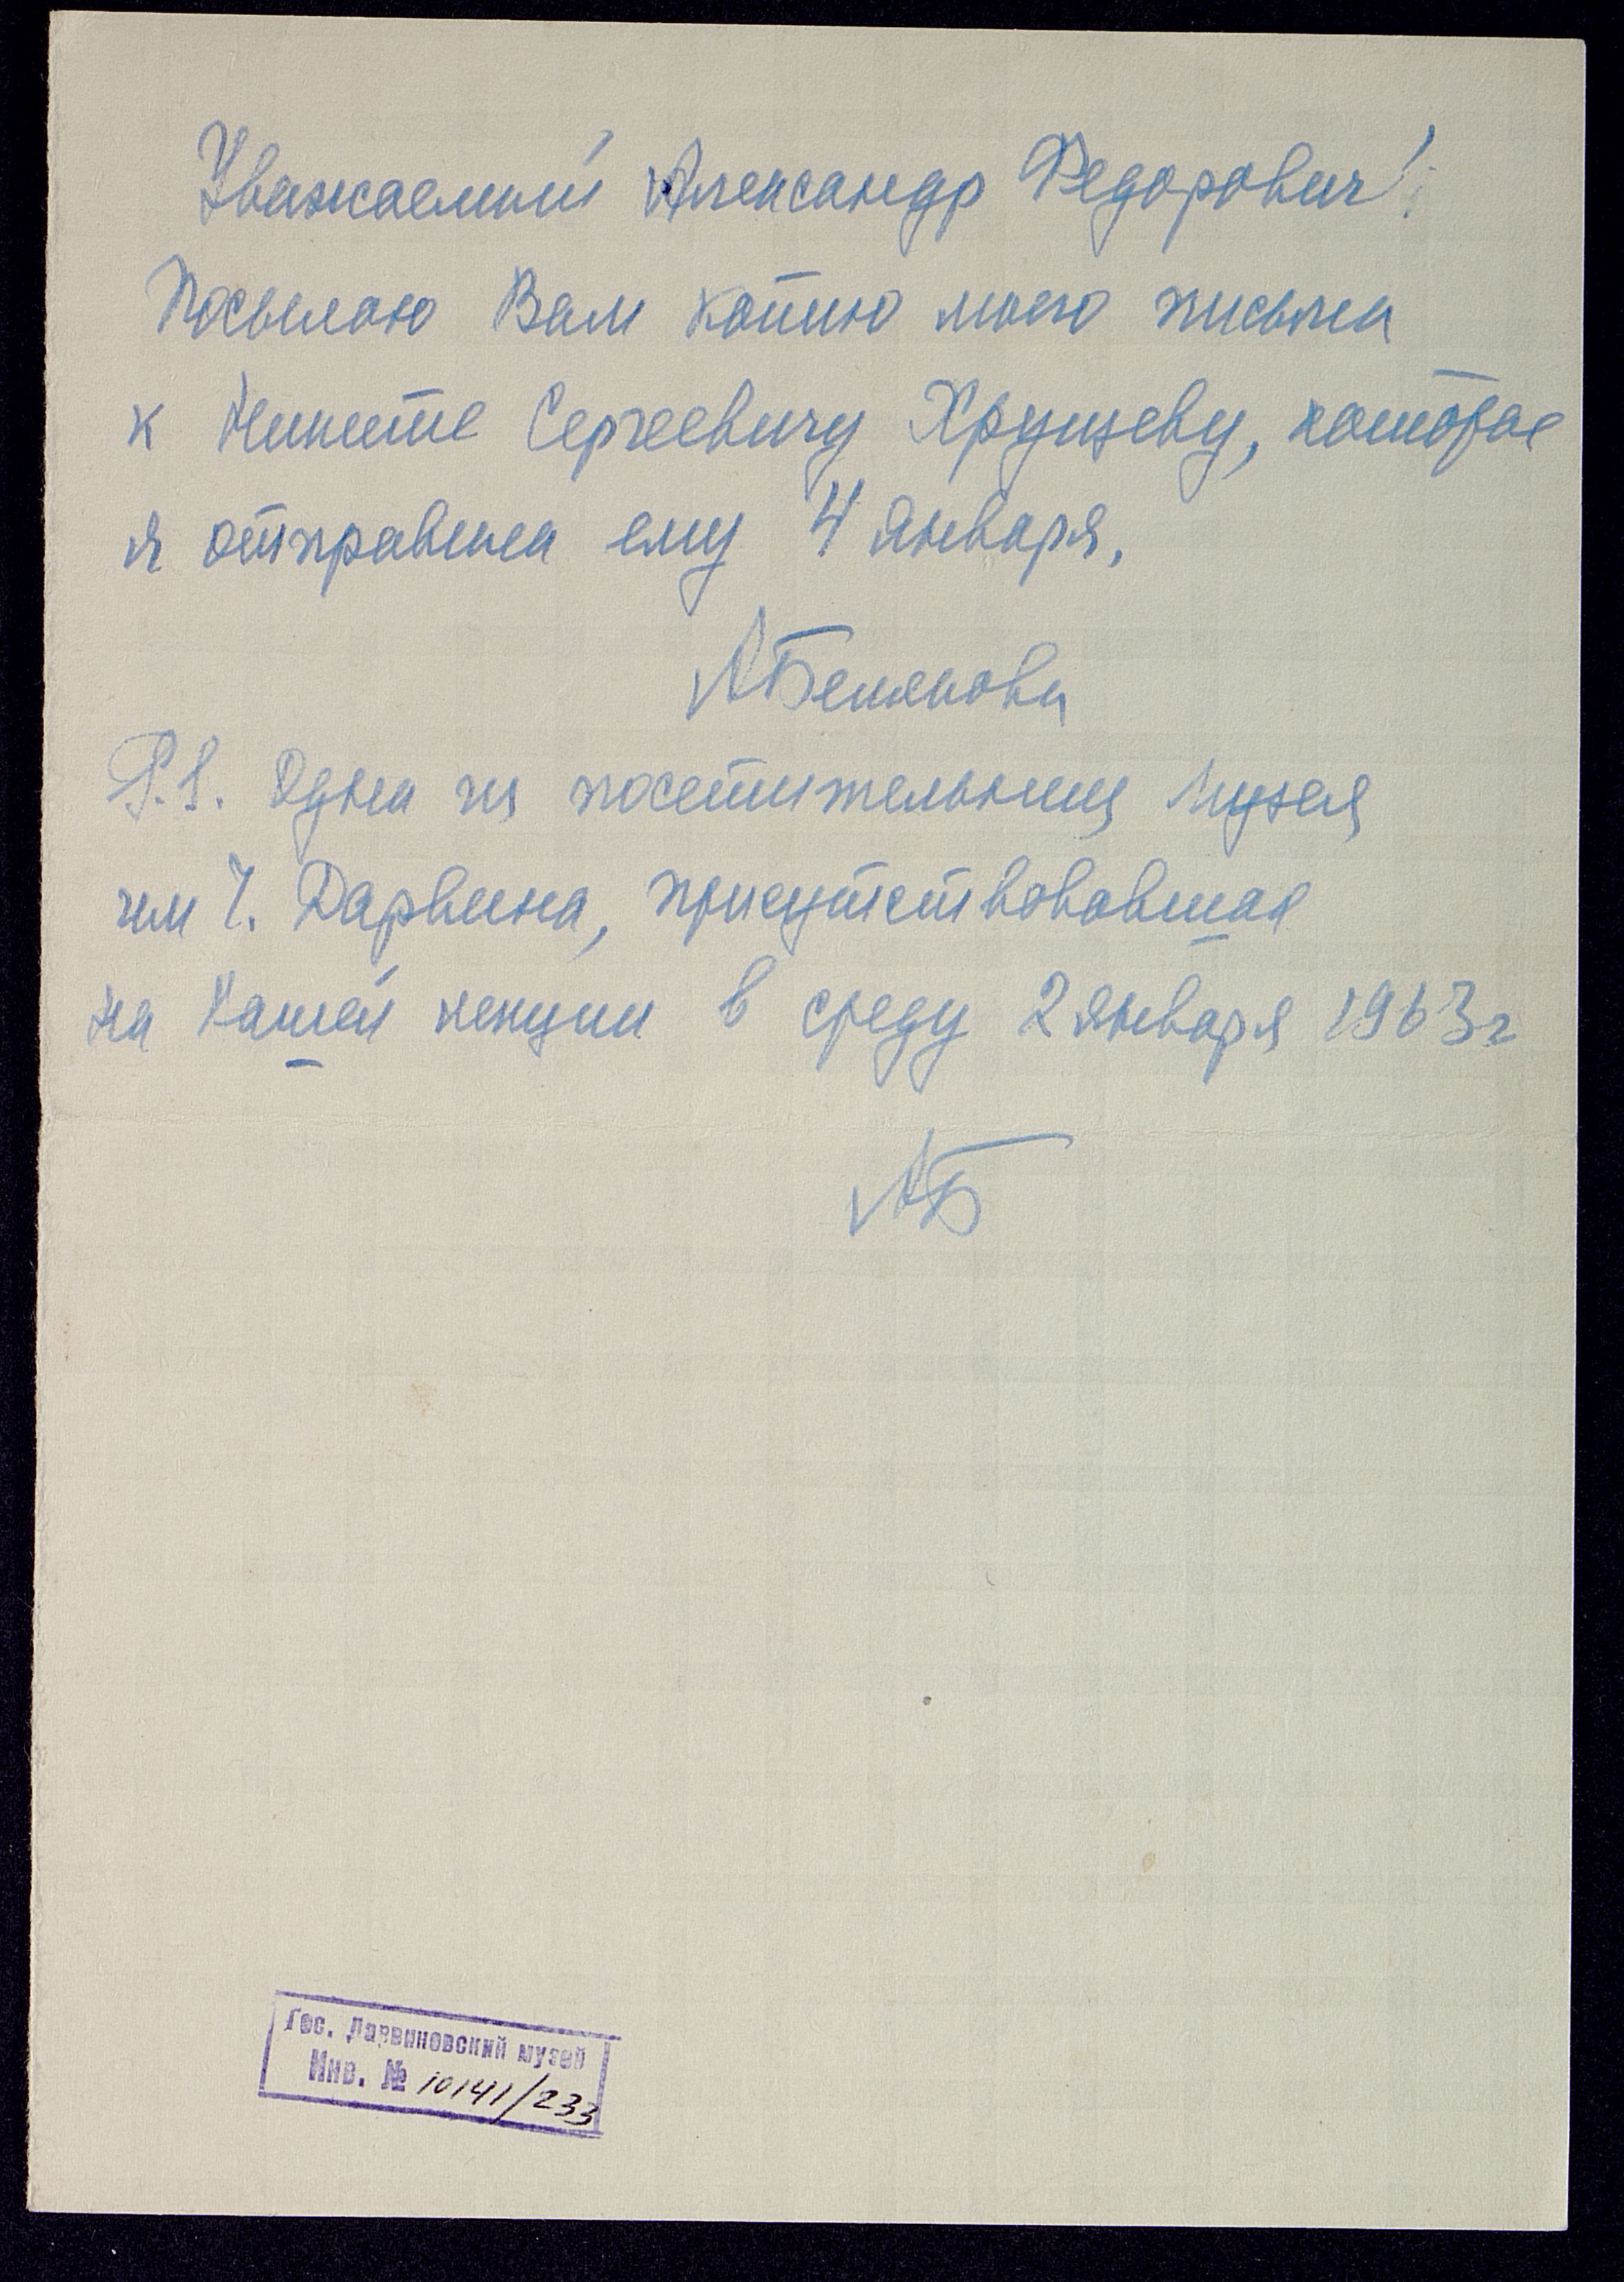 Уважаемый Александр Федорович!
Посылаю Вам копию моего письма
к Никите Сергеевичу Хрущеву, которое
я отправила ему 4 января.
АБелякова
P.S. Одна из посетительниц Музея
им Ч. Дарвина, присутствовавшая
на Вашей лекции в среду 2 января 1963 г
АБ
Гос. Дарвиновский музей
Инв. № 10141/233